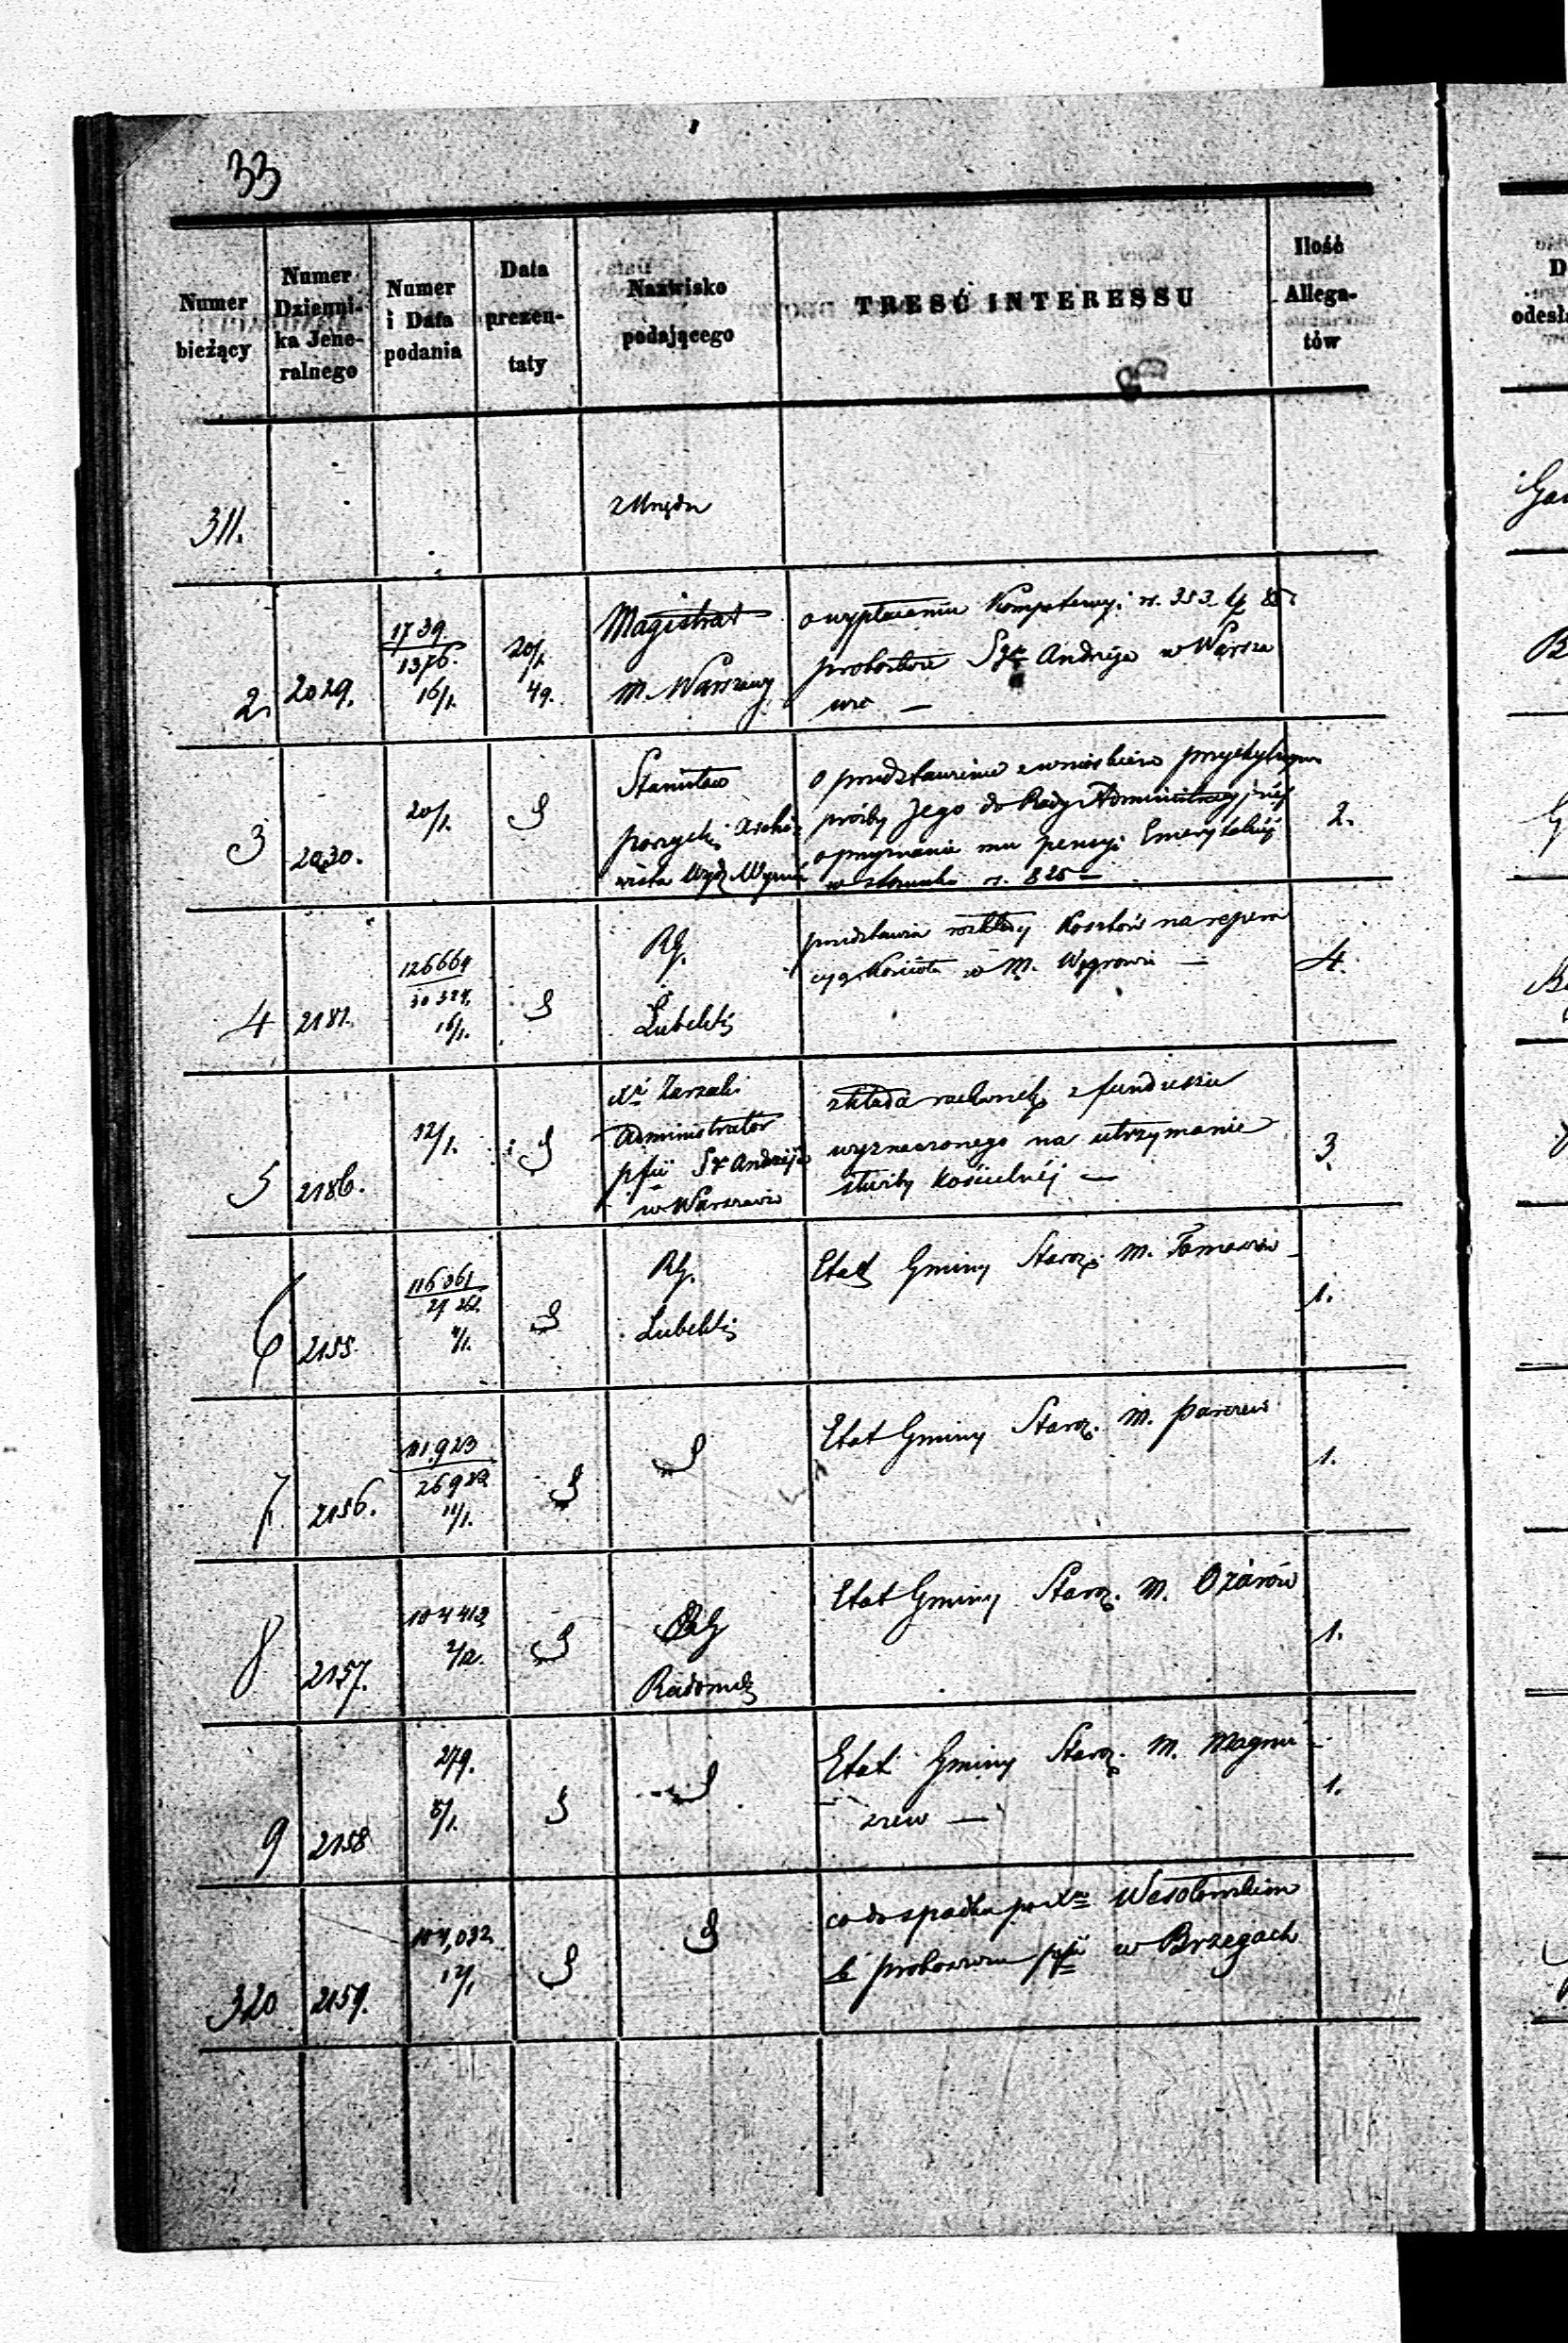 33
Numer bieżący
Numer Dzienni- ka Jene- ralnego
Numer i Data podania
Data prezen- taty
Nazwisko podającego
TREŚĆ INTERESSU
Ilość Allega- tów
311.
z Urzędu
2. 2029.
1739
1376.
16/1.
20/1.
49.
Magistrat
m. Warszawy
o wypłacenie Kompetencyi rs. 353
probostwa Sgo Andrzeja w Warsza
wie —
3 2030.
20/1.
Stanisław
Archi-
wista Wydz. Wyznań
o przedstawienie z wnioskiem przychylnym
prośby Jego do Rady Administracyjnéj
o przyznanie mu pensyi Emerytalnéj
w stosunku rs. 825 —
2.
4 2181.
126664
30324.
16/1.
RG.
Lubelski
przedstawia rozkłady Kosztów na repera
cyą Kościoła w M. Węgrowie —
4.
5 2186.
12/1.
Xs. Zarzecki
Administrator
pfii S. Andrzeja
w Warszawie
składa rachunek z funduszu
wyznaczonego na utrzymanie
służby kościelnéj —
3.
6 2155.
116061
RG.
Lubelski
Etat Gminy Staroz. M. Tomaszów —
1.
7 2156.
26922
11/1.
Etat Gminy Staroz. M. Parczew
1.
8 2157.
104412
2/12.
RG
Radomski
Etat Gminy Staroz. M. Ożarów
1.
9 2158
279.
5/1.
Etat Gminy Staroz. M. Magnu-
szew —
1.
320 2159.
104,032
12/1
co do spadku po Xdzu Wesołowskim
b. proboszczu pfii w Brzegach